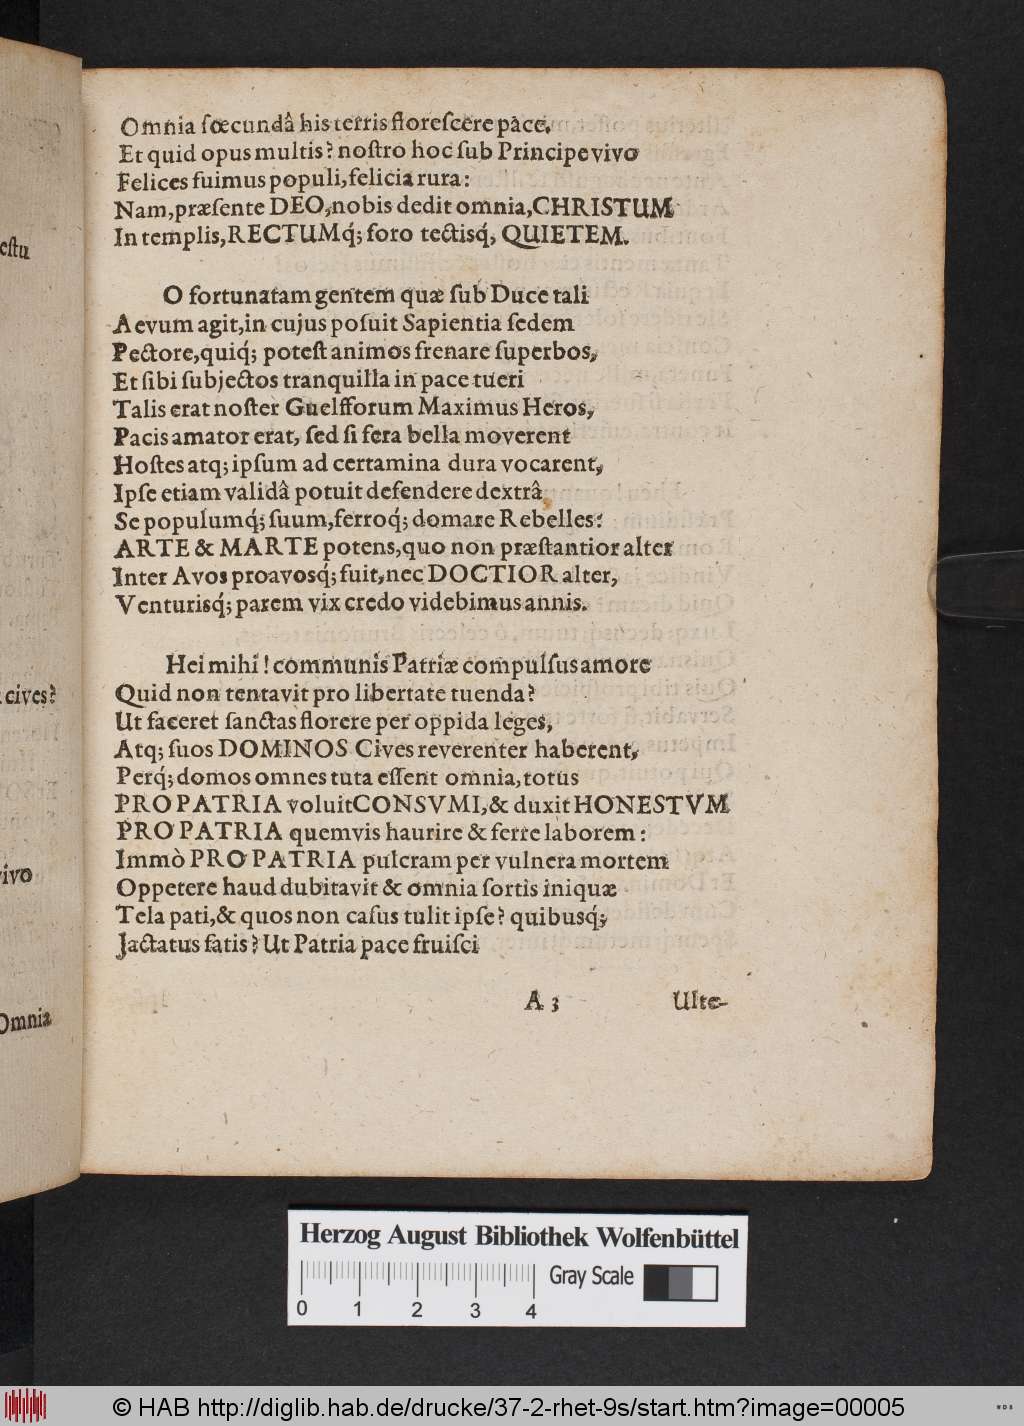 estu
cives?
vivo
Omnia
Omnia fœcundâ his terris florescere pace.
Et quid opus multis? nostro hoc sub Principe vivo
Felices fuimus populi, felicia rura:
Nam, præsente DEO, nobis dedit omnia, CHRISTUM
In templis, RECTUMq́; foro tectisq́, QUIETEM.
O fortunatam gentem quæ sub Duce tali
Aevum agit, in cujus posuit Sapientia sedem
Pectore, quiq́; potest animos frenare superbos,
Et sibi subjectos tranquilla in pace tueri
Talis erat noster Guelfforum Maximus Heros,
Pacis amator erat, sed si fera bella moverent
Hostes atq; ipsum ad certamina dura vocarent,
Ipse etiam validâ potuit defendere dextrâ
Se populumq́; suum, ferroq́; domare Rebelles:
ARTE & MARTE potens, quo non præstantior alter
Inter Avos proavosq́; fuit, nec DOCTIOR alter,
Venturisq́; parem vix credo videbimus annis.
Hei mihi! communis Patriæ compulsus amore
Quid non tentavit pro libertate tuenda?
Ut faceret sanctas florere per oppida leges,
Atq; suos DOMINOS Cives reverenter haberent,
Perq́; domos omnes tuta essent omnia, totus
PRO PATRIA voluit CONSVMI, & duxit HONESTVM
PRO PATRIA quemvis haurire & ferre laborem:
Immò PRO PATRIA pulcram per vulnera mortem
Oppetere haud dubitavit & omnia sortis iniquæ
Tela pati, & quos non casus tulit ipse? quibusq́;
Jactatus fatis? Ut Patria pace fruisci
A 3 Ulte-
Herzog August Bibliothek Wolfenbüttel
Gray Scale
0 1 2 3 4
© HAB http://diglib.hab.de/drucke/37-2-rhet-9s/start.htm?image=00005